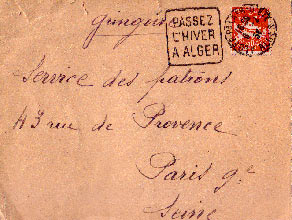 PASSEZ
L'HIVER
A ALGER
Service des patrons
43 rue de Provence
Paris 9e
Seine